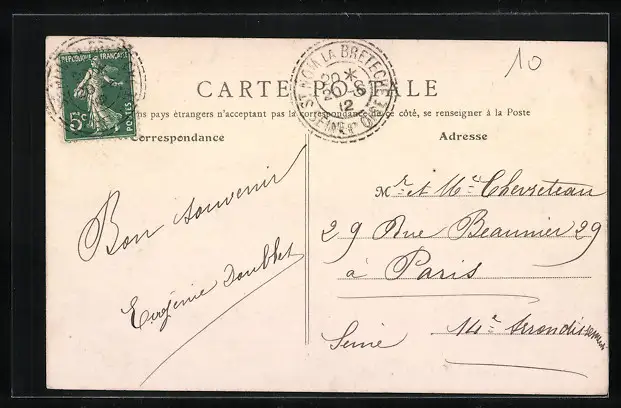 10
REPUBLIQUE FRANÇAISE
5c
POSTES
ST NOM LA BRETECHE
20 *
12
SEINE ET OISE
CARTE POSTALE
ns pays étrangers n'acceptant pas la correspondance de ce côté, se renseigner à la Poste
Correspondance
Adresse
Bon souvenir
Eugénie Doublet
Mr et Me Chevreteau
29 Rue Beaunier 29
à Paris
Seine 14e Arrondissement